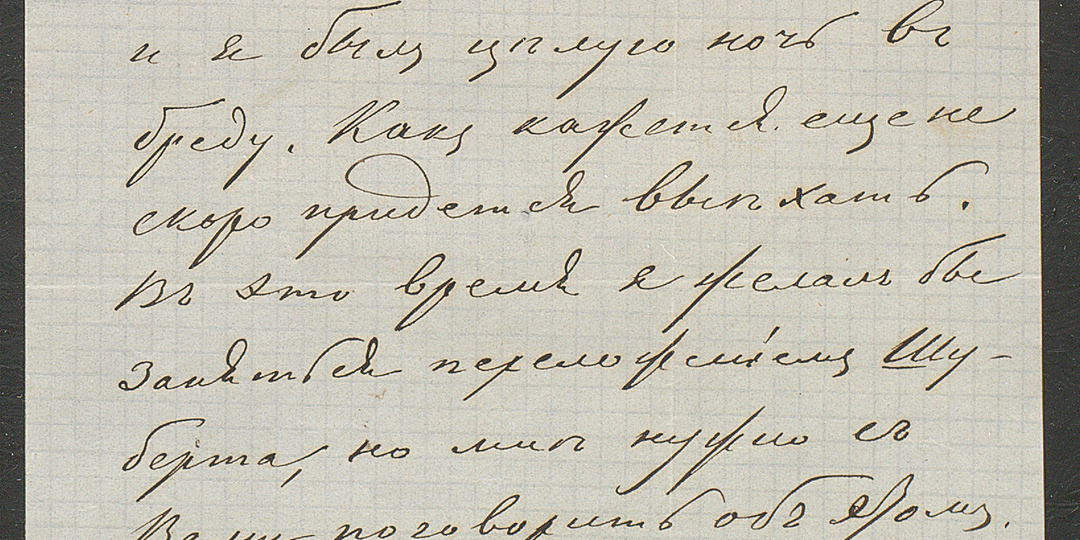 и я былъ цѣлую ночь въ
бреду. Какъ кажется еще не
скоро придется выѣхать.
Въ это время я желалъ бы
заняться переложеніемъ Шу-
берта, но мнѣ нужно съ
Вами поговорить объ этомъ.